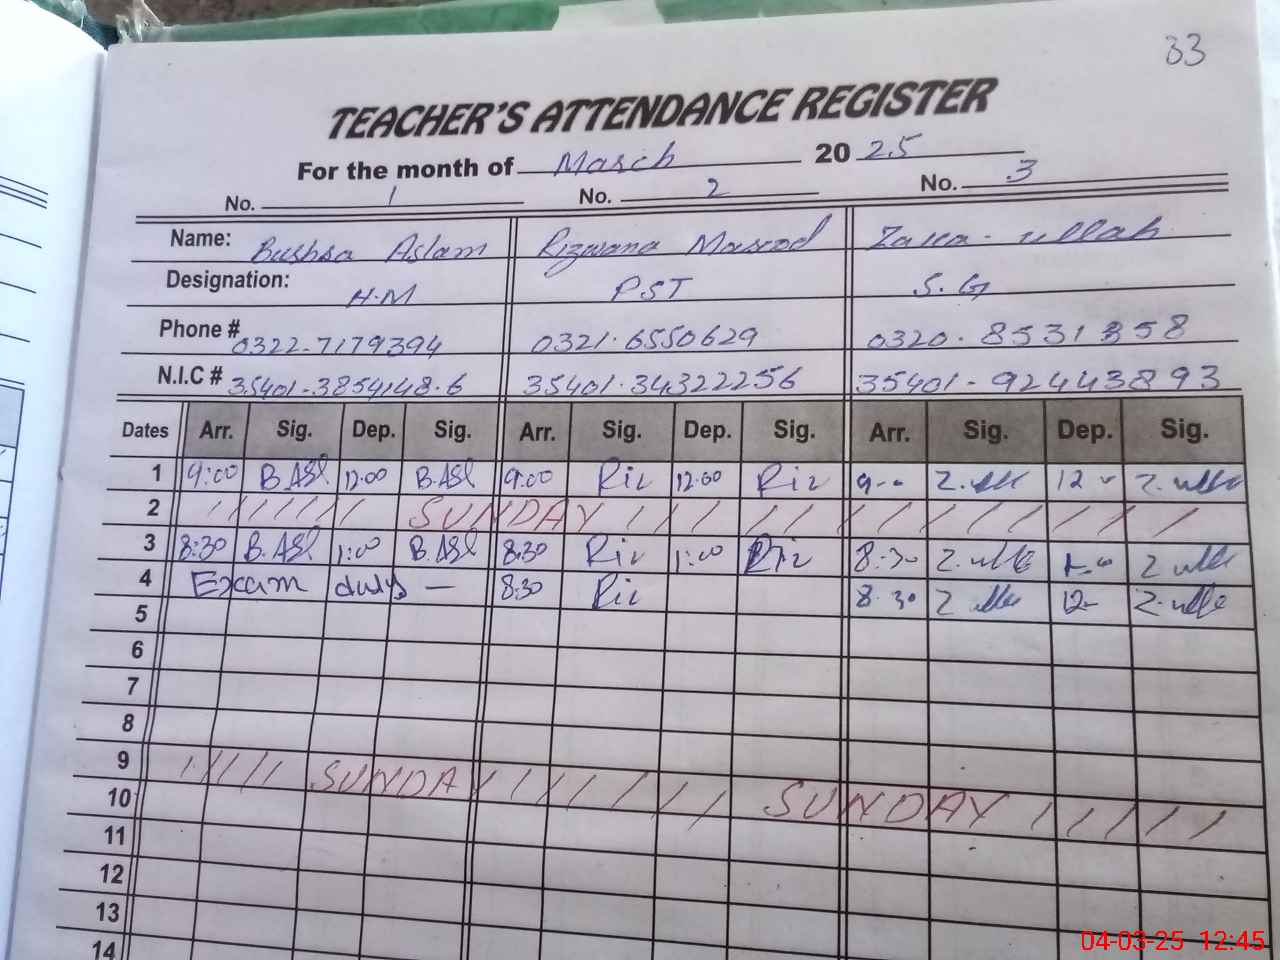 33
TEACHER'S ATTENDANCE REGISTER
For the month of March 2025
No. 1 No. 2 No. 3
Name: Bushra Aslam Rizwana Masood Zaka-ullah
Designation: H.M PST S.G
Phone # 0322-7179394 0321.6550629 0320.8531358
N.I.C # 35401-3854148.6 35401.34322256 35401-92443893
Dates Arr. Sig. Dep. Sig. Arr. Sig. Dep. Sig. Arr. Sig. Dep. Sig.
1 9:00 B.Asl 12:00 B.Asl 9:00 Riz 12:00 Riz 9-- Z.ulla 12 - Z.ulla
2 SUNDAY
3 8:30 B.Asl 1:00 B.Asl 8:30 Riz 1:00 Riz 8:30 Z.ulla 1-00 Z ulla
4 Exam duty — 8:30 Riz 8.30 Z ulla 12- Z.ulla
5
6
7
8
9 SUNDAY SUNDAY
10
11
12
13
14
04-03-25 12:45